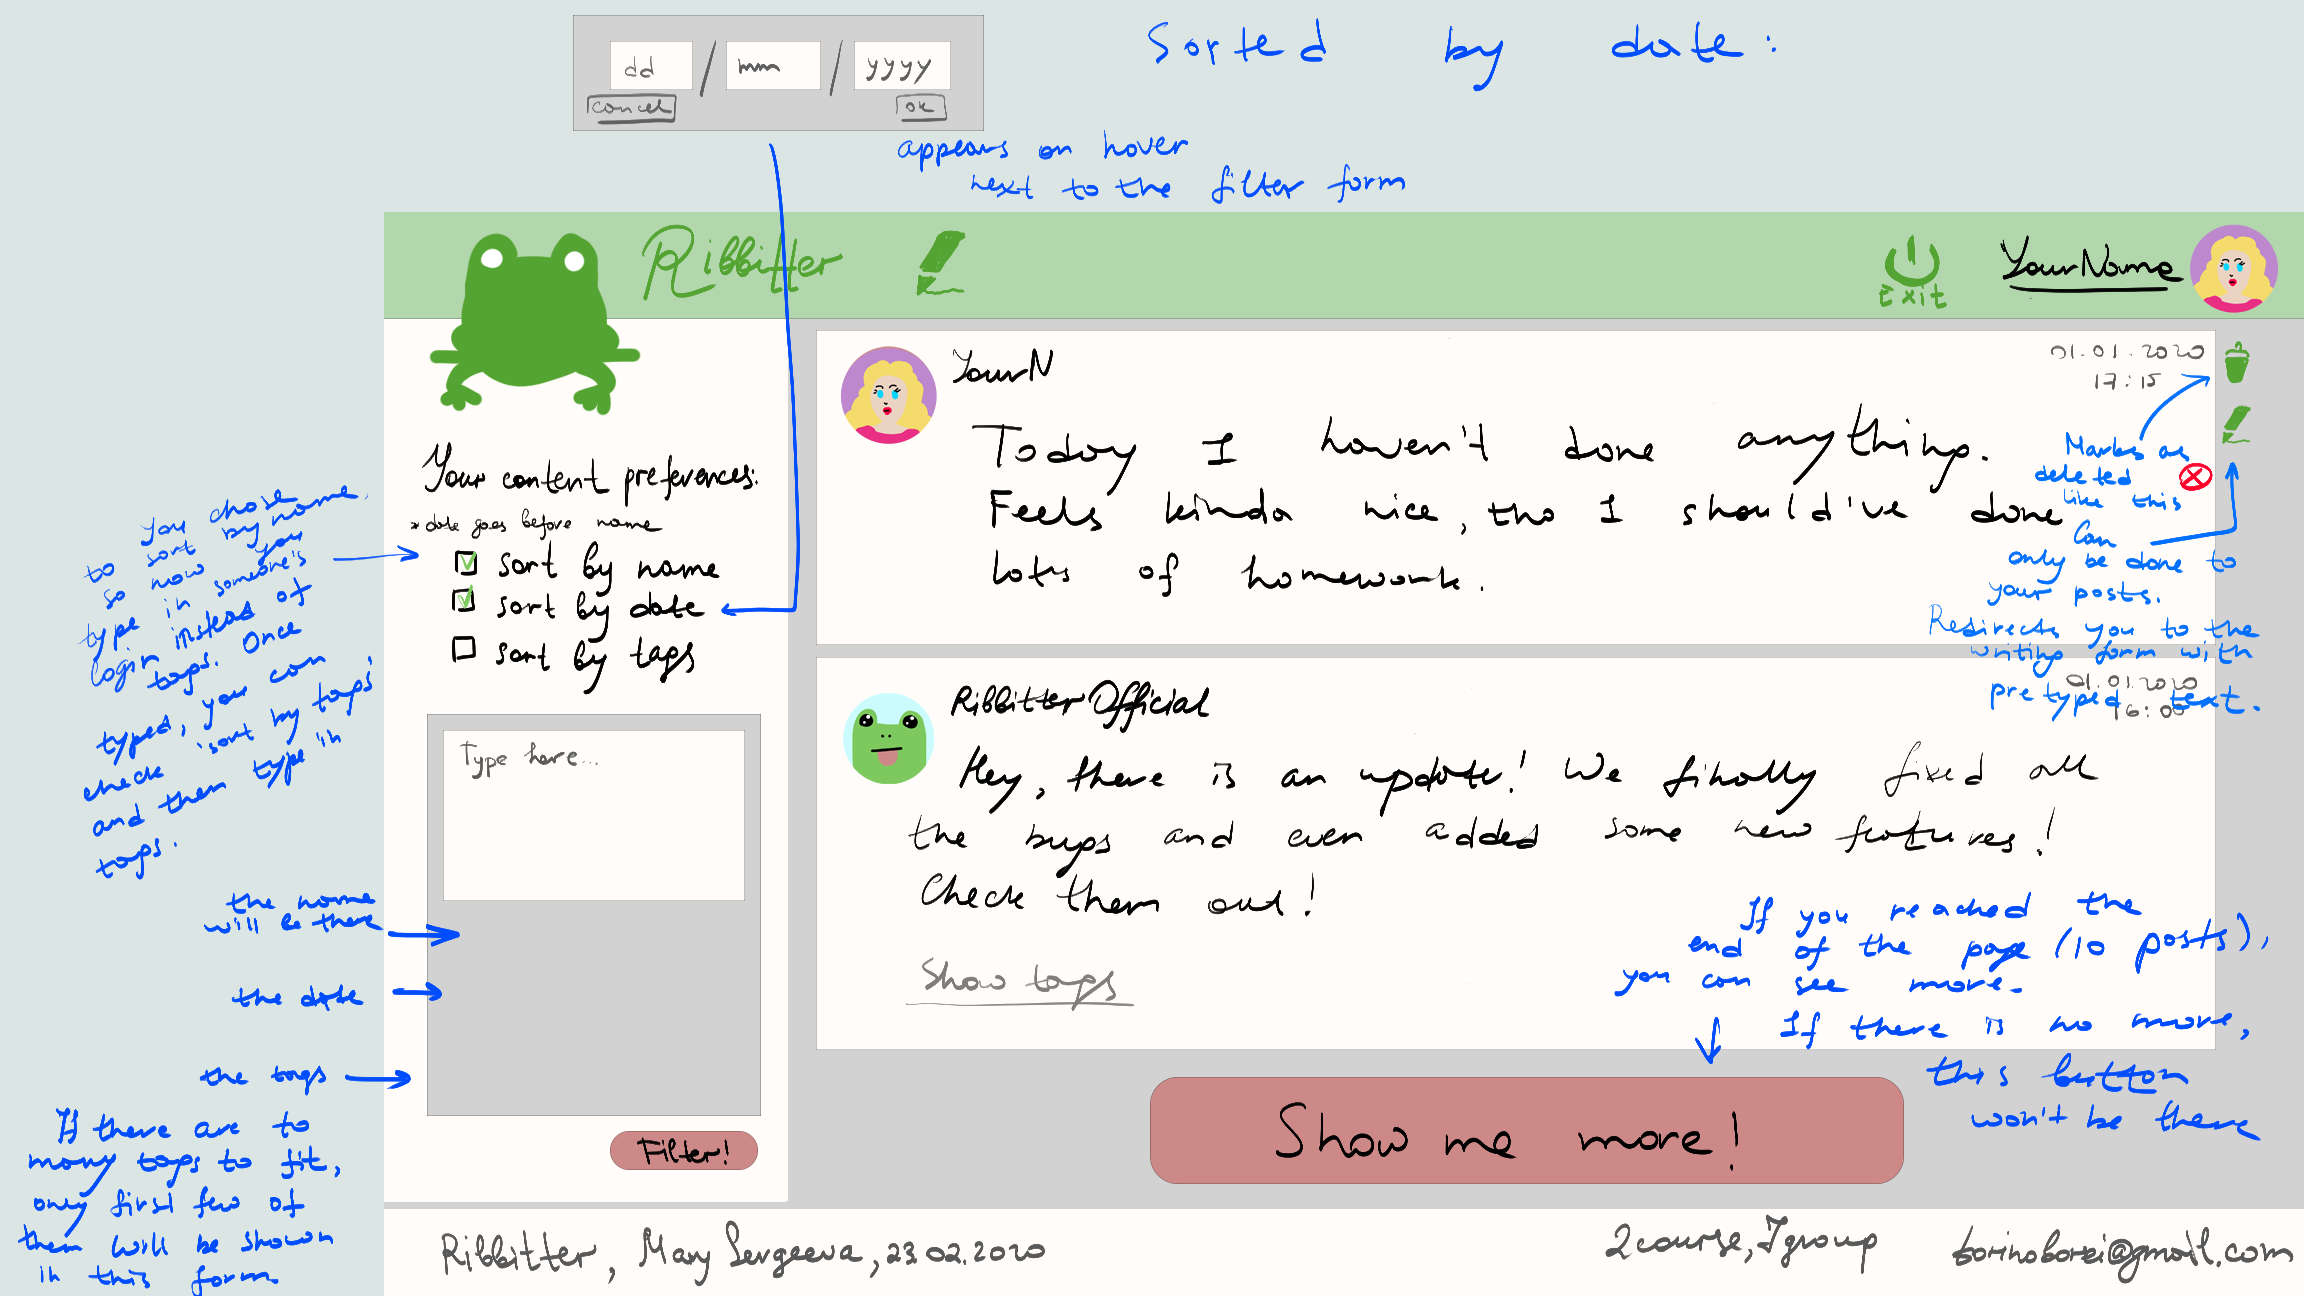 dd / mm / yyyy
cancel
ok
Sorted by date:
appears on hover
next to the filter form
Ribbitter
Exit
YourName
Your content preferences:
* date goes before name
sort by name
sort by date
sort by tags
you chose
to sort by name,
so now you
type in someone's
login instead of
tags. Once
typed, you can
check 'sort by tags'
and then type in
tags.
Type here...
the name
will be there
the date
the tags
If there are to
many tags to fit,
only first few of
them will be shown
in this form
Filter!
YourN
01.01.2020
17:15
Today I haven't done anything.
Feels kinda nice, tho I should've done
lots of homework.
Marks as
deleted
like this
Can
only be done to
your posts.
Redirects you to the
writing form with
pretyped text.
Ribbitter Official
01.01.2020
16:00
Hey, there is an update! We finally fixed all
the bugs and even added some new features!
Check them out!
Show tags
If you reached the
end of the page (10 posts),
you can see more.
If there is no more,
this button
won't be there
Show me more!
Ribbitter, Mary Sergeeva, 23.02.2020
2course, 7group